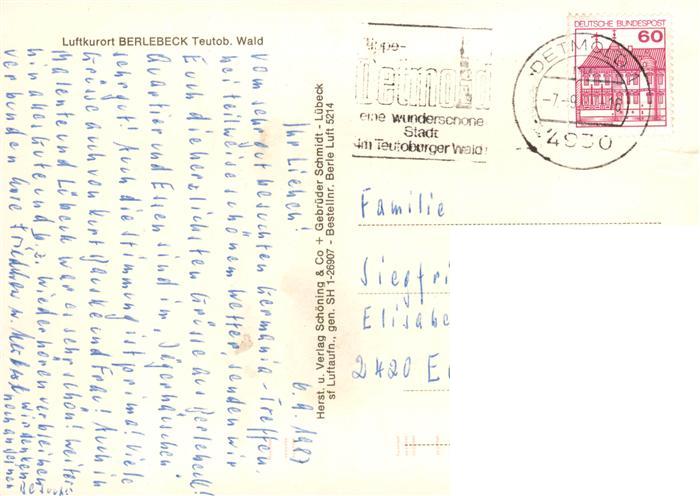 Luftkurort BERLEBECK Teutob. Wald
6.9.1987
Ihr Lieben!
Vom sehr gut besuchten Germania-Treffen,
bei teilweise schönem Wetter, senden wir
Euch die herzlichsten Grüsse aus Berlebeck!
Quartier und Essen sind im "Jägerhäuschen"
sehr gut! Auch die Stimmung ist prima! Viele
Grüsse auch von Kurt und Frau! Auch in
und Lübeck war es sehr schön! Weiter-
hin alles Gute und biz. Wiederhören verbleiben
verbunden Eure u.
wir denken
noch an
Herst. u. Verlag Schöning & Co + Gebrüder Schmidt - Lübeck
sf Luftaufn., gen. SH 1-26907 - Bestellnr. Berle Luft 5214
Lippe-
Detmold
eine wunderschöne
Stadt
im Teutoburger Wald
DETMOLD
-7.-9.
16
4930
DEUTSCHE BUNDESPOST
60
Familie
Siegfri
Elisabe
2420 E